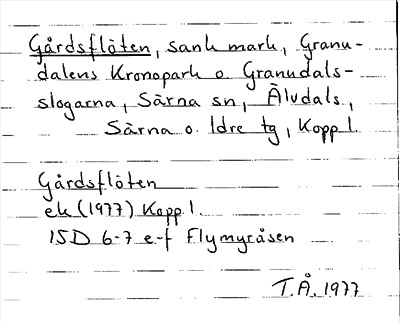 Gårdsflöten, sank mark, Granu-
dalens Kronopark o Granudals-
slogarna, Särna sn, Älvdals,
Särna o. Idre tg, Kopp l.
Gårdsflöten
ek (1977) Kopp l.
15D 6-7 e-f Flymyråsen
T.Å. 1977